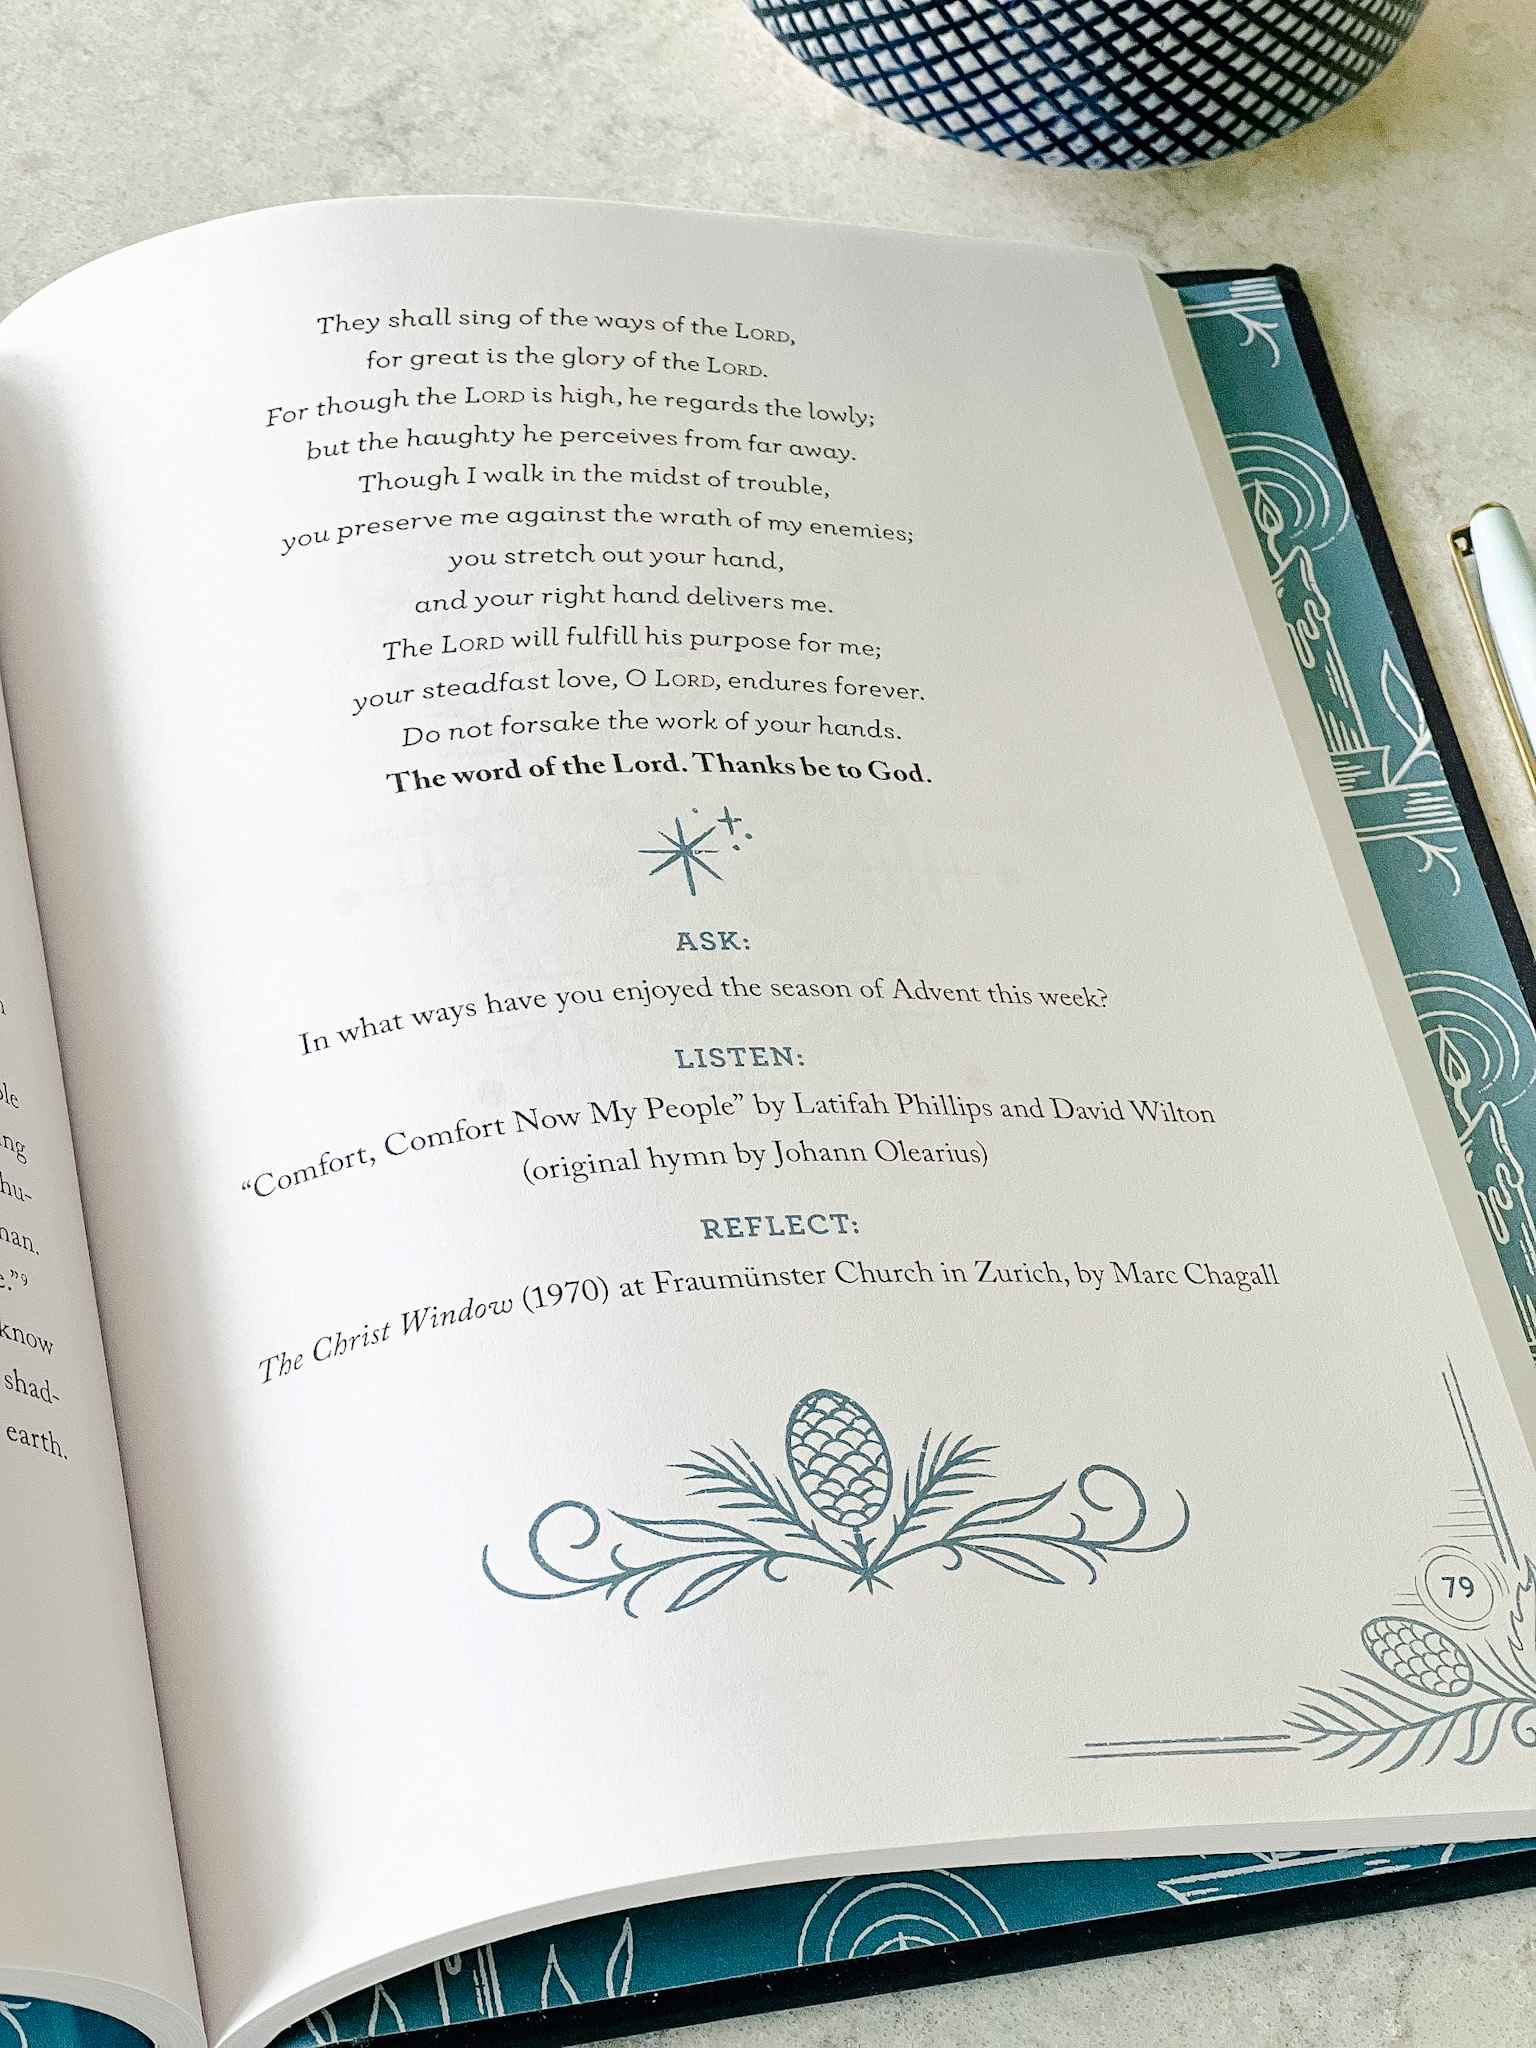 ple
ng
hu-
man.
e.”⁹
know
shad-
earth.
They shall sing of the ways of the LORD,
for great is the glory of the LORD.
For though the LORD is high, he regards the lowly;
but the haughty he perceives from far away.
Though I walk in the midst of trouble,
you preserve me against the wrath of my enemies;
you stretch out your hand,
and your right hand delivers me.
The LORD will fulfill his purpose for me;
your steadfast love, O LORD, endures forever.
Do not forsake the work of your hands.
The word of the Lord. Thanks be to God.
ASK:
In what ways have you enjoyed the season of Advent this week?
LISTEN:
“Comfort, Comfort Now My People” by Latifah Phillips and David Wilton
(original hymn by Johann Olearius)
REFLECT:
The Christ Window (1970) at Fraumünster Church in Zurich, by Marc Chagall
79